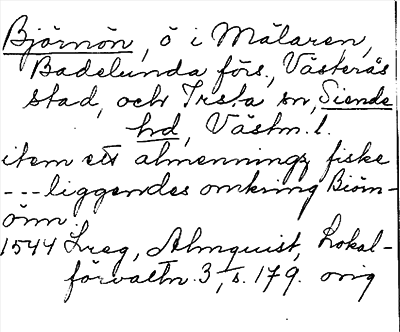 Björnön, ö i Mälaren,
Badelunda förs., Västerås
stad, och Irsta sn, Siende
hd, Västm. l.
item ett almennings fiske
---liggendes omkring Biörn-
önn.
1544 Lreg, Almquist, Lokal-
förvaltn. 3, s. 179. orig